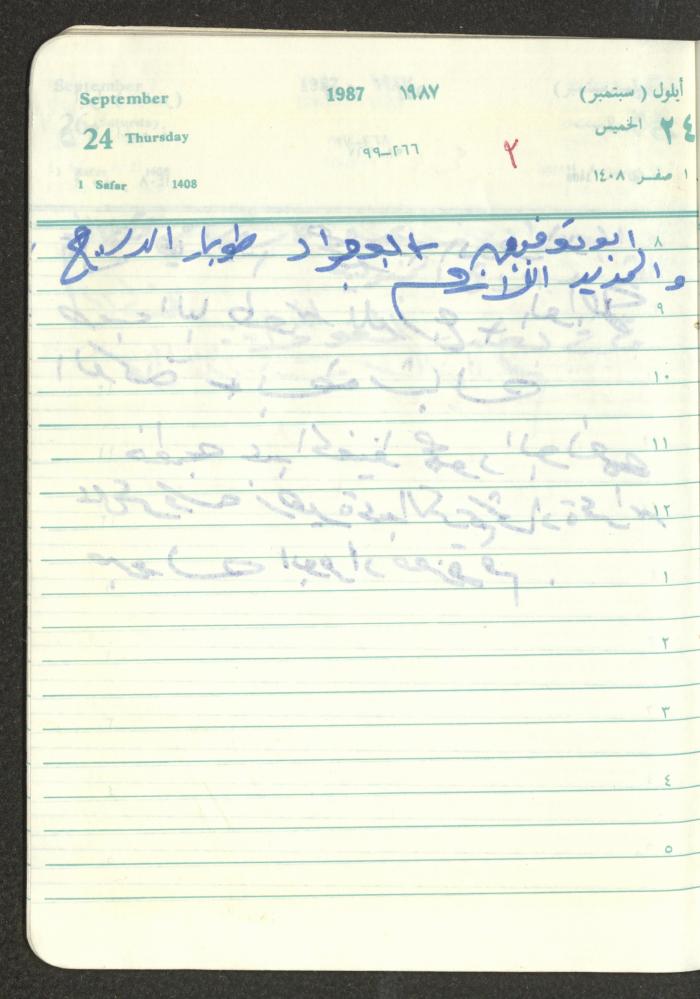 September 1987 ١٩٨٧ أيلول ( سبتمبر )
24 Thursday ٢٤ الخميس
٢٦٦-٩٩ ٢
1 Safar 1408 ١ صفر ١٤٠٨
٨ ابو توفيق + ابو جواد طوبار
والحديد اللازم
٩
١٠
١١
١٢
١
٢
٣
٤
٥